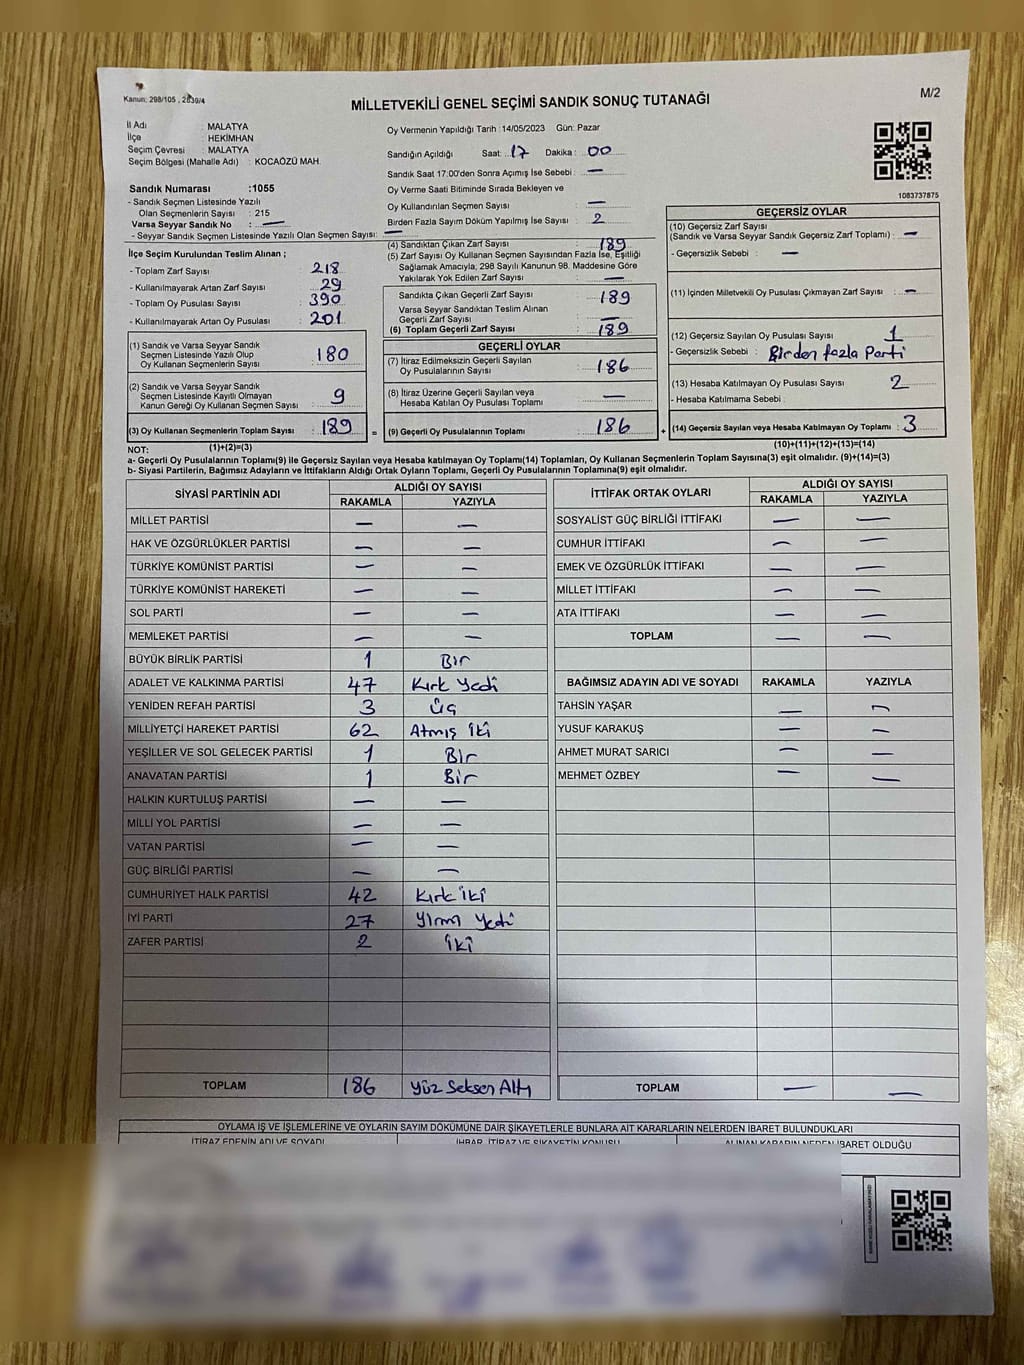 Kanun: 298/105 , 2839/4
MİLLETVEKİLİ GENEL SEÇİMİ SANDIK SONUÇ TUTANAĞI
M/2
İl Adı : MALATYA
İlçe : HEKİMHAN
Seçim Çevresi : MALATYA
Seçim Bölgesi (Mahalle Adı) : KOCAÖZÜ MAH.
Sandık Numarası :1055
- Sandık Seçmen Listesinde Yazılı
Olan Seçmenlerin Sayısı : 215
Varsa Seyyar Sandık No : —
- Seyyar Sandık Seçmen Listesinde Yazılı Olan Seçmen Sayısı: —
Oy Vermenin Yapıldığı Tarih :14/05/2023 Gün: Pazar
Sandığın Açıldığı Saat: 17 Dakika : 00
Sandık Saat 17:00'den Sonra Açılmış İse Sebebi : —
Oy Verme Saati Bitiminde Sırada Bekleyen ve
Oy Kullandırılan Seçmen Sayısı : —
Birden Fazla Sayım Döküm Yapılmış İse Sayısı : 2
1083737875
İlçe Seçim Kurulundan Teslim Alınan ;
- Toplam Zarf Sayısı : 218
- Kullanılmayarak Artan Zarf Sayısı : 29
- Toplam Oy Pusulası Sayısı : 390
- Kullanılmayarak Artan Oy Pusulası : 201
(1) Sandık ve Varsa Seyyar Sandık
Seçmen Listesinde Yazılı Olup
Oy Kullanan Seçmenlerin Sayısı : 180
(2) Sandık ve Varsa Seyyar Sandık
Seçmen Listesinde Kayıtlı Olmayan
Kanun Gereği Oy Kullanan Seçmen Sayısı : 9
(3) Oy Kullanan Seçmenlerin Toplam Sayısı : 189 =
(1)+(2)=(3)
(4) Sandıktan Çıkan Zarf Sayısı : 189
(5) Zarf Sayısı Oy Kullanan Seçmen Sayısından Fazla İse, Eşitliği
Sağlamak Amacıyla, 298 Sayılı Kanunun 98. Maddesine Göre
Yakılarak Yok Edilen Zarf Sayısı : —
Sandıkta Çıkan Geçerli Zarf Sayısı : 189
Varsa Seyyar Sandıktan Teslim Alınan
Geçerli Zarf Sayısı : —
(6) Toplam Geçerli Zarf Sayısı : 189
GEÇERLİ OYLAR
(7) İtiraz Edilmeksizin Geçerli Sayılan
Oy Pusulalarının Sayısı : 186
(8) İtiraz Üzerine Geçerli Sayılan veya
Hesaba Katılan Oy Pusulası Toplamı : —
(9) Geçerli Oy Pusulalarının Toplamı : 186 +
GEÇERSİZ OYLAR
(10) Geçersiz Zarf Sayısı
(Sandık ve Varsa Seyyar Sandık Geçersiz Zarf Toplamı) : —
- Geçersizlik Sebebi : —
(11) İçinden Milletvekili Oy Pusulası Çıkmayan Zarf Sayısı : —
(12) Geçersiz Sayılan Oy Pusulası Sayısı : 1
- Geçersizlik Sebebi : Birden fazla Parti
(13) Hesaba Katılmayan Oy Pusulası Sayısı : 2
- Hesaba Katılmama Sebebi :
(14) Geçersiz Sayılan veya Hesaba Katılmayan Oy Toplamı : 3
(10)+(11)+(12)+(13)=(14)
NOT:
a- Geçerli Oy Pusulalarının Toplamı(9) ile Geçersiz Sayılan veya Hesaba Katılmayan Oy Toplamı(14) Toplamları, Oy Kullanan Seçmenlerin Toplam Sayısına(3) eşit olmalıdır. (9)+(14)=(3)
b- Siyasi Partilerin, Bağımsız Adayların ve İttifakların Aldığı Ortak Oyların Toplamı, Geçerli Oy Pusulalarının Toplamına(9) eşit olmalıdır.
SİYASİ PARTİNİN ADI ALDIĞI OY SAYISI
RAKAMLA YAZIYLA
MİLLET PARTİSİ — —
HAK VE ÖZGÜRLÜKLER PARTİSİ — —
TÜRKİYE KOMÜNİST PARTİSİ — —
TÜRKİYE KOMÜNİST HAREKETİ — —
SOL PARTİ — —
MEMLEKET PARTİSİ — —
BÜYÜK BİRLİK PARTİSİ 1 Bir
ADALET VE KALKINMA PARTİSİ 47 Kırk Yedi
YENİDEN REFAH PARTİSİ 3 Üç
MİLLİYETÇİ HAREKET PARTİSİ 62 Atmış iki
YEŞİLLER VE SOL GELECEK PARTİSİ 1 Bir
ANAVATAN PARTİSİ 1 Bir
HALKIN KURTULUŞ PARTİSİ — —
MİLLİ YOL PARTİSİ — —
VATAN PARTİSİ — —
GÜÇ BİRLİĞİ PARTİSİ — —
CUMHURİYET HALK PARTİSİ 42 Kırk iki
İYİ PARTİ 27 Yirmi Yedi
ZAFER PARTİSİ 2 iki
TOPLAM 186 Yüz Seksen Altı
İTTİFAK ORTAK OYLARI ALDIĞI OY SAYISI
RAKAMLA YAZIYLA
SOSYALİST GÜÇ BİRLİĞİ İTTİFAKI — —
CUMHUR İTTİFAKI — —
EMEK VE ÖZGÜRLÜK İTTİFAKI — —
MİLLET İTTİFAKI — —
ATA İTTİFAKI — —
TOPLAM — —
BAĞIMSIZ ADAYIN ADI VE SOYADI RAKAMLA YAZIYLA
TAHSİN YAŞAR — —
YUSUF KARAKUŞ — —
AHMET MURAT SARICI — —
MEHMET ÖZBEY — —
TOPLAM — —
OYLAMA İŞ VE İŞLEMLERİNE VE OYLARIN SAYIM DÖKÜMÜNE DAİR ŞİKAYETLERLE BUNLARA AİT KARARLARIN NELERDEN İBARET BULUNDUKLARI
İTİRAZ EDENİN ADI VE SOYADI İHBAR, İTİRAZ VE ŞİKAYETİN KONUSU ALINAN KARARIN NEDEN İBARET OLDUĞU